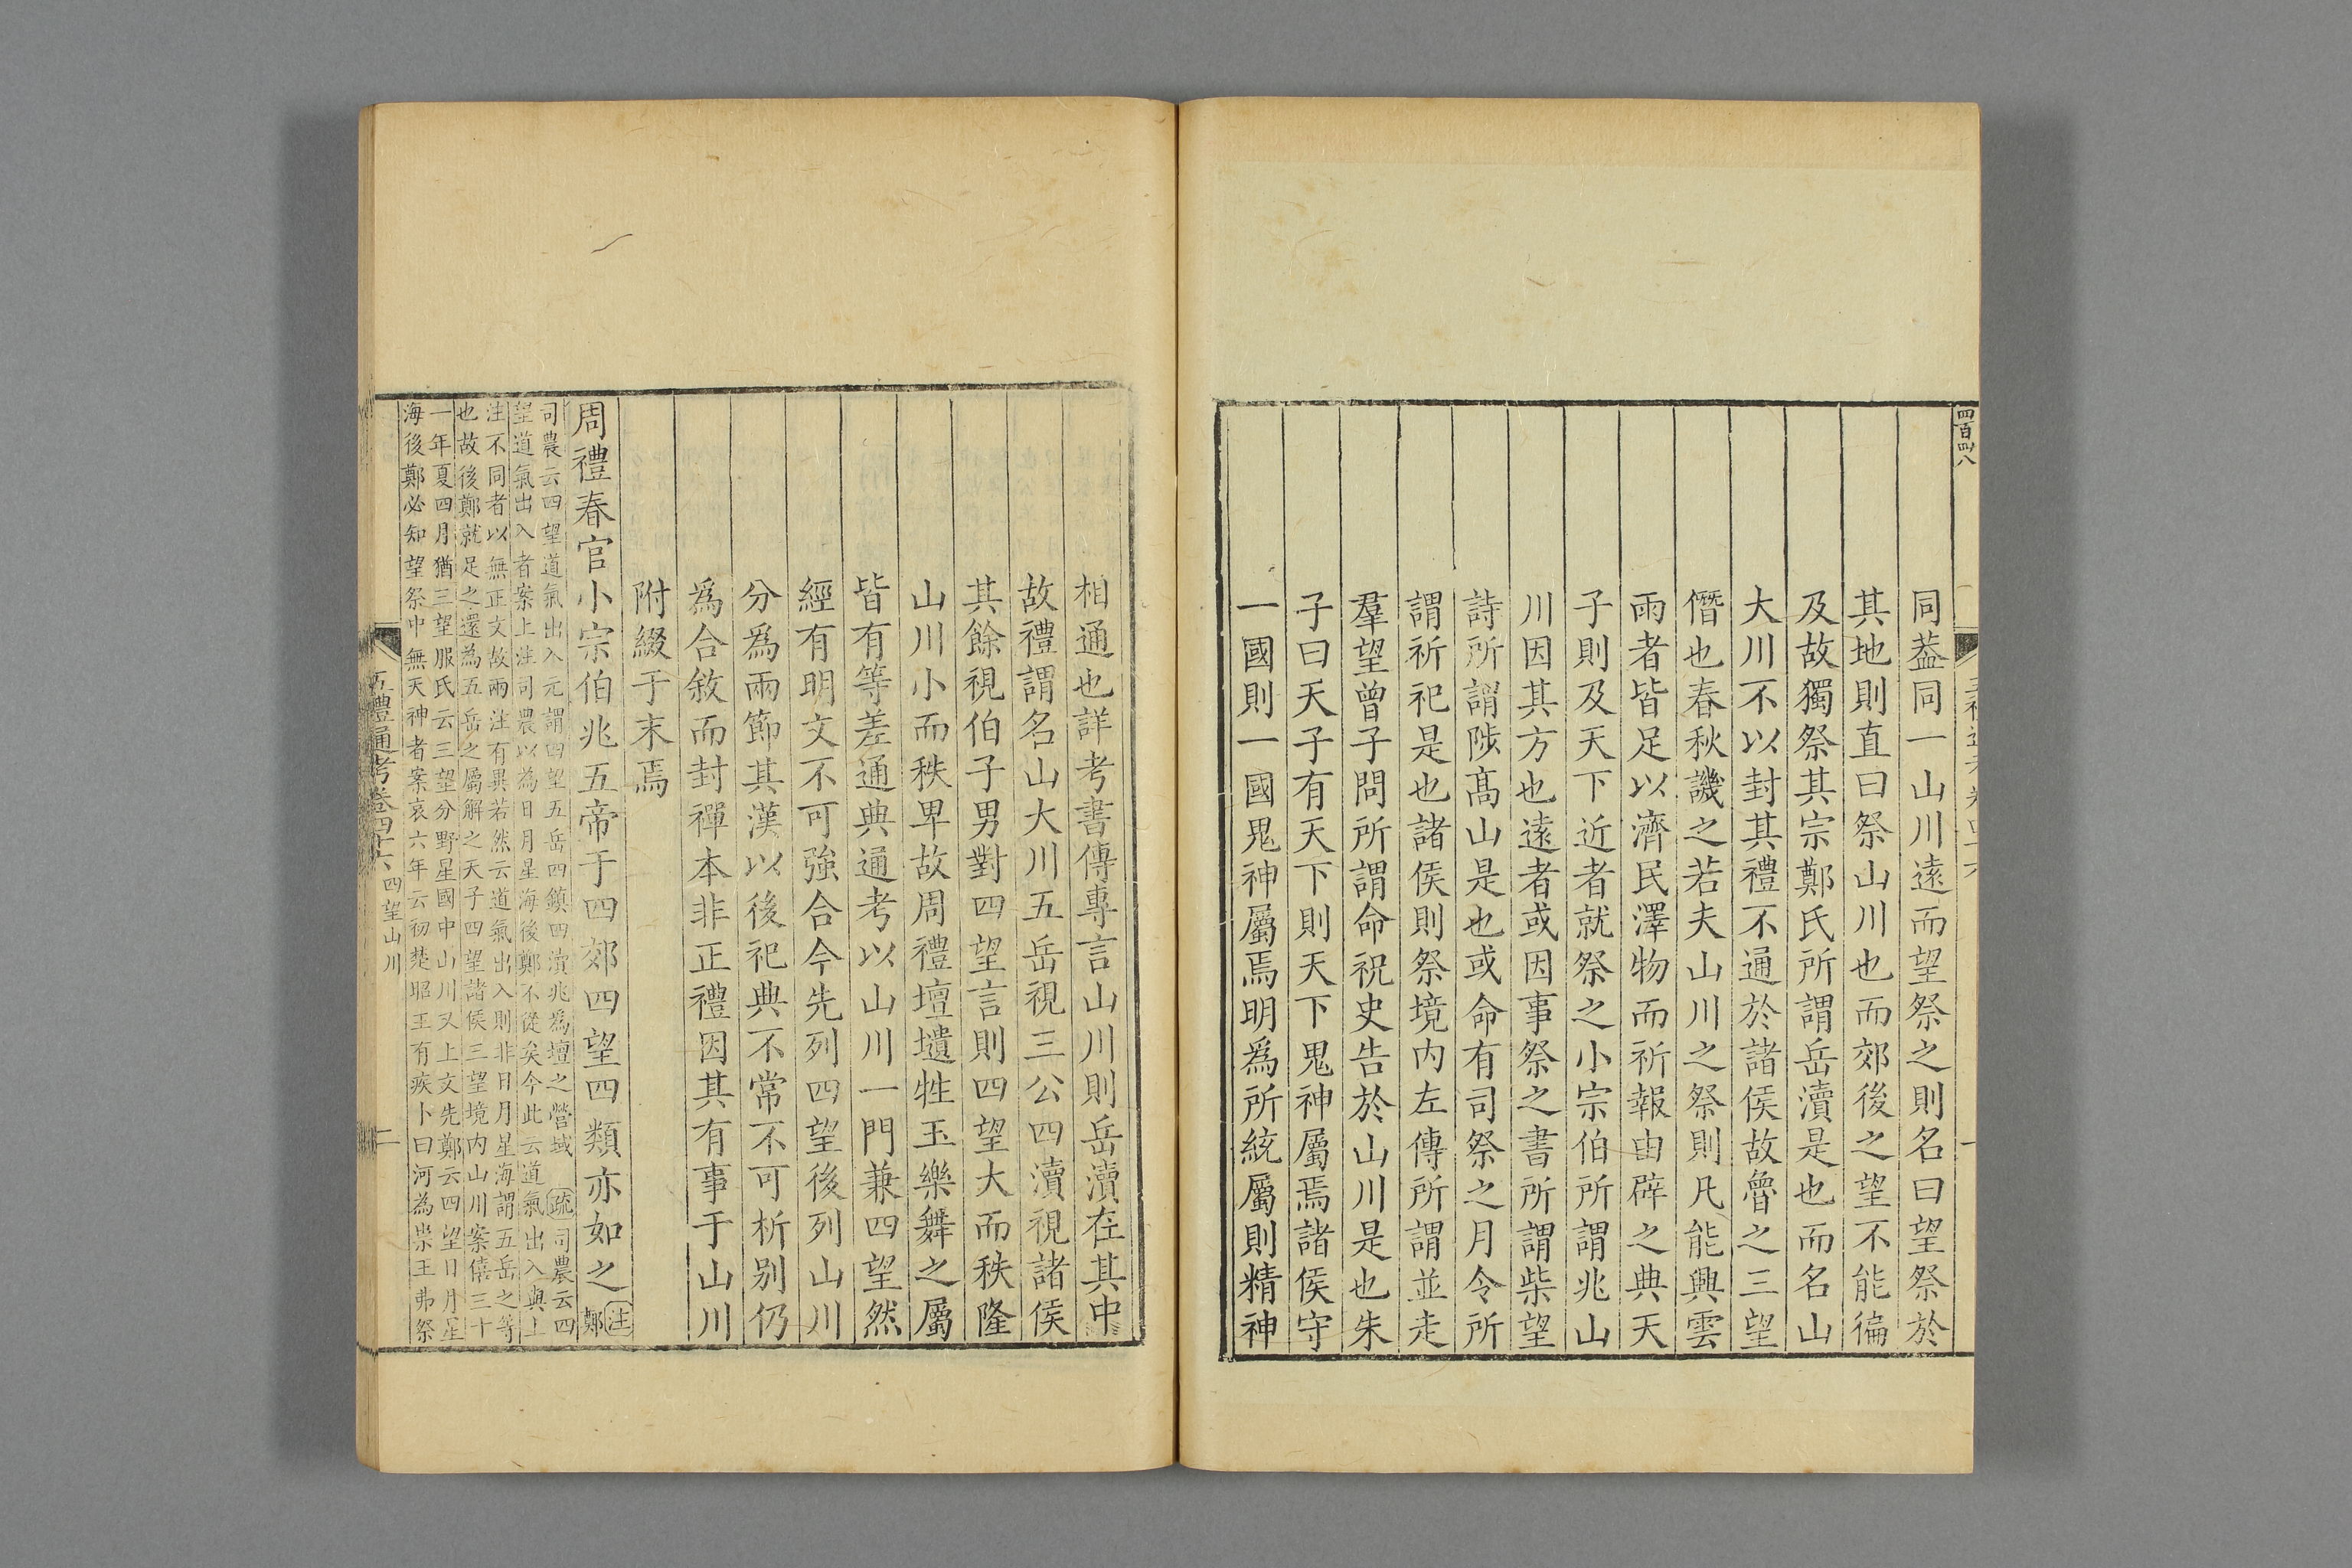 同葢同一山川遠而望祭之則名曰望祭於
其地則直曰祭山川也而郊後之望不能徧
及故獨祭其宗鄭氏所謂岳瀆是也而名山
大川不以封其禮不通於諸侯故魯之三望
僭也春秋譏之若夫山川之祭則凡能興雲
雨者皆足以濟民澤物而祈報由辟之典天
子則及天下近者就祭之小宗伯所謂兆山
川因其方也遠者或因事祭之書所謂柴望
詩所謂陟髙山是也或命有司祭之月令所
謂祈祀是也諸侯則祭境内左傳所謂並走
羣望曾子問所謂命祝史告於山川是也朱
子曰天子有天下則天下鬼神屬焉諸侯守
一國則一國鬼神屬焉明爲所統屬則精神
四百四八
相通也詳考書傳專言山川則岳瀆在其中
故禮謂名山大川五岳視三公四瀆視諸侯
其餘視伯子男對四望言則四望大而秩隆
山川小而秩卑故周禮壇壝牲玉樂舞之屬
皆有等差通典通考以山川一門兼四望然
經有明文不可強合今先列四望後列山川
分爲兩節其漢以後祀典不常不可析别仍
爲合敘而封禪本非正禮因其有事于山川
附綴于末焉
周禮春官小宗伯兆五帝于四郊四望四類亦如之注鄭
司農云四望道氣出入元謂四望五岳四鎮四瀆兆為壇之營域 疏司農云四
望道氣出入者案上注司農以為日月星海後鄭不從矣今此云道氣出入與上
注不同者以無正文故兩注有異若然云道氣出入則非日月星海謂五岳之等
也故後鄭就足之還為五岳之屬解之天子四望諸侯三望境内山川案僖三十
一年夏四月猶三望服氏云三望分野星國中山川又上文先鄭云四望日月星
海後鄭必知望祭中無天神者案哀六年云初楚昭王有疾卜曰河為祟王弗祭
五禮通考卷四十六 四望山川
二